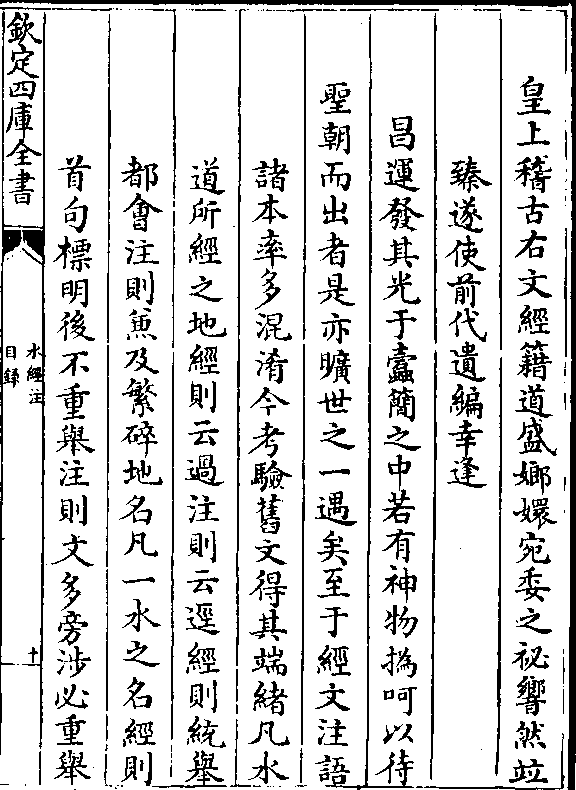 皇上稽古右文經籍道盛嫏嬛宛委之祕響然竝
臻遂使前代遺編幸逢
昌運發其光于蠹簡之中若有神物撝呵以待
聖朝而出者是亦曠世之一遇矣至于經文注語
諸本率多混淆今考驗舊文得其端緒凡水
道所經之地經則云過注則云逕經則統舉
都會注則兼及繁碎地名凡一水之名經則
首句標明後不重舉注則文多旁涉必重舉
欽定四庫全書
水經注
目録
十